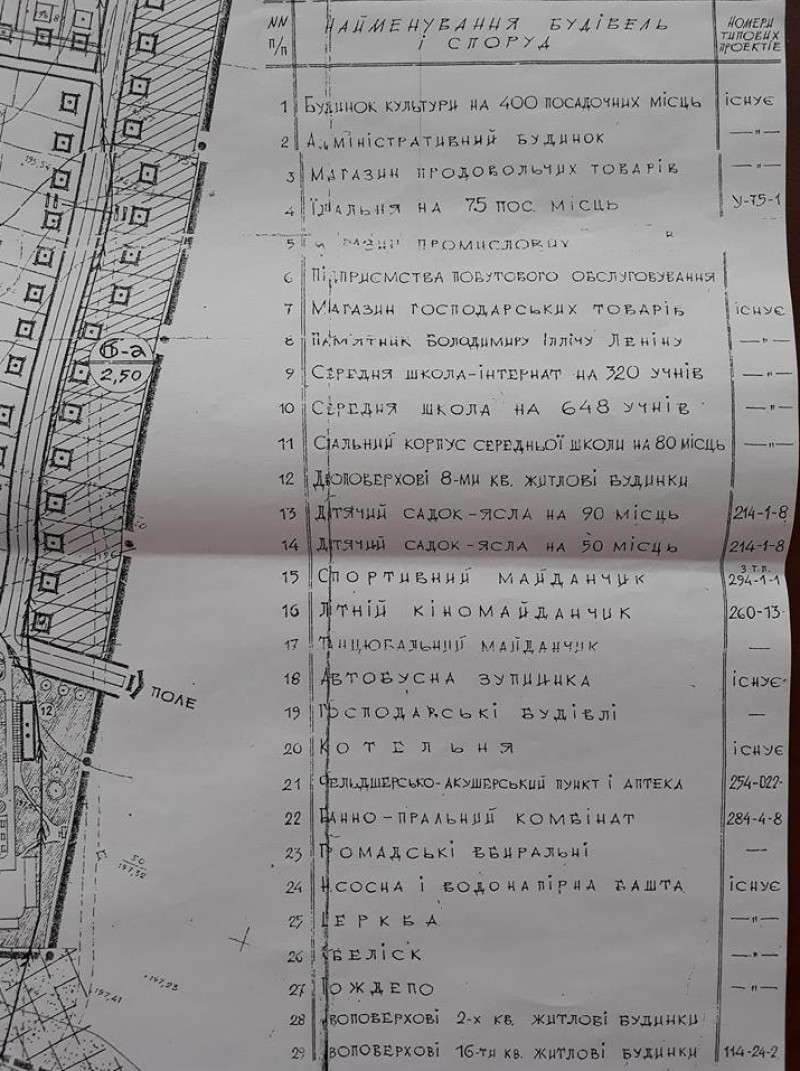 NN п/п НАЙМЕНУВАННЯ БУДІВЕЛЬ І СПОРУД НОМЕРИ ТИПОВИХ ПРОЕКТІВ
1 БУДИНОК КУЛЬТУРИ НА 400 ПОСАДОЧНИХ МІСЦЬ ІСНУЄ
2 АДМІНІСТРАТИВНИЙ БУДИНОК —"—
3 МАГАЗИН ПРОДОВОЛЬЧИХ ТОВАРІВ —"—
4 ЇДАЛЬНЯ НА 75 ПОС. МІСЦЬ У-75-1
5 ПРОМИСЛОВИХ
6 ПІДПРИЄМСТВА ПОБУТОВОГО ОБСЛУГОВУВАННЯ
7 МАГАЗИН ГОСПОДАРСЬКИХ ТОВАРІВ ІСНУЄ
8 ПАМ'ЯТНИК ВОЛОДИМИРУ ІЛЛІЧУ ЛЕНІНУ —"—
9 СЕРЕДНЯ ШКОЛА-ІНТЕРНАТ НА 320 УЧНІВ —"—
10 СЕРЕДНЯ ШКОЛА НА 648 УЧНІВ —"—
11 СПАЛЬНИЙ КОРПУС СЕРЕДНЬОЇ ШКОЛИ НА 80 МІСЦЬ —"—
12 ДВОПОВЕРХОВІ 8-МИ КВ. ЖИТЛОВІ БУДИНКИ
13 ДИТЯЧИЙ САДОК-ЯСЛА НА 90 МІСЦЬ 214-1-8
14 ДИТЯЧИЙ САДОК-ЯСЛА НА 50 МІСЦЬ 214-1-8
15 СПОРТИВНИЙ МАЙДАНЧИК З Т.П. 294-1-1
16 ЛІТНІЙ КІНОМАЙДАНЧИК 260-13-
17 ТАНЦЮВАЛЬНИЙ МАЙДАНЧИК —
18 АВТОБУСНА ЗУПИНКА ІСНУЄ
19 ГОСПОДАРСЬКІ БУДІВЛІ —
20 КОТЕЛЬНЯ ІСНУЄ
21 ФЕЛЬДШЕРСЬКО-АКУШЕРСЬКИЙ ПУНКТ І АПТЕКА 254-022-
22 БАННО-ПРАЛЬНИЙ КОМБІНАТ 284-4-8
23 ГРОМАДСЬКІ ВБИРАЛЬНІ —
24 НАСОСНА І ВОДОНАПІРНА БАШТА ІСНУЄ
25 ЦЕРКВА —"—
26 ОБЕЛІСК —"—
27 ПОЖДЕПО —"—
28 ДВОПОВЕРХОВІ 2-Х КВ. ЖИТЛОВІ БУДИНКИ
29 ДВОПОВЕРХОВІ 16-ТИ КВ. ЖИТЛОВІ БУДИНКИ 114-24-2
6-а
2,50
ПОЛЕ
12
50
197,52
197,41
197,23